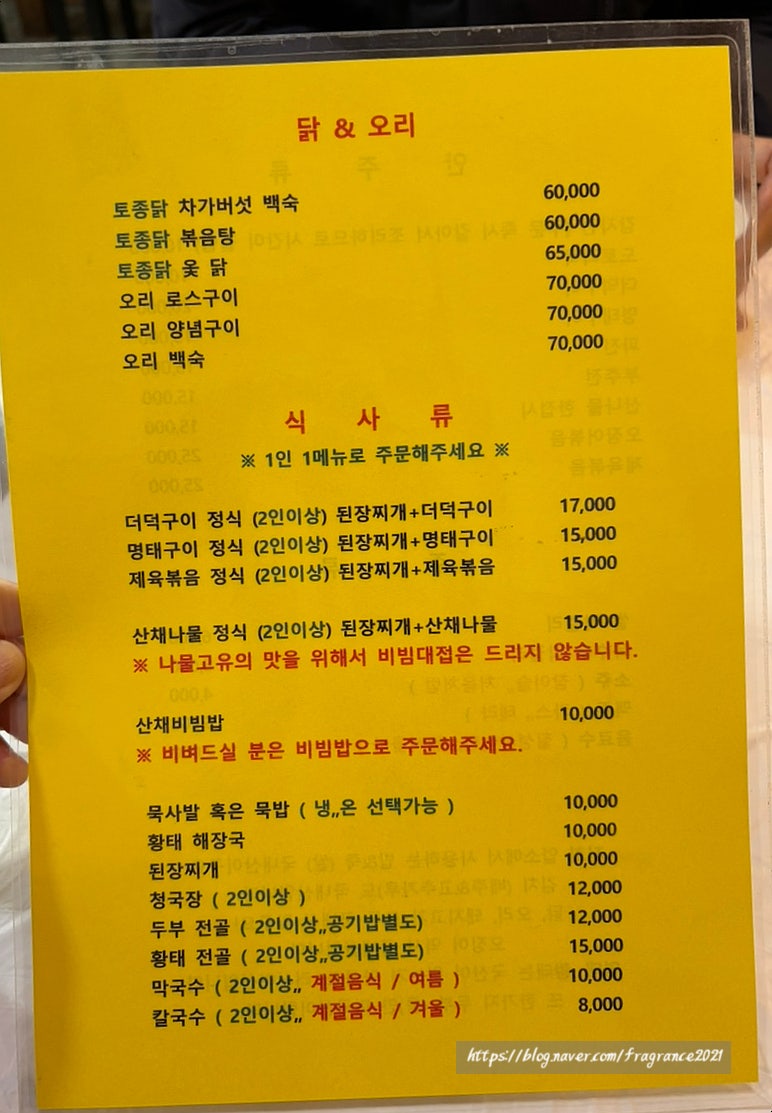 닭 & 오리
토종닭 차가버섯 백숙 60,000
토종닭 볶음탕 60,000
토종닭 옻 닭 65,000
오리 로스구이 70,000
오리 양념구이 70,000
오리 백숙 70,000
식 사 류
※ 1인 1메뉴로 주문해주세요 ※
더덕구이 정식 (2인이상) 된장찌개+더덕구이 17,000
명태구이 정식 (2인이상) 된장찌개+명태구이 15,000
제육볶음 정식 (2인이상) 된장찌개+제육볶음 15,000
산채나물 정식 (2인이상) 된장찌개+산채나물 15,000
※ 나물고유의 맛을 위해서 비빔대접은 드리지 않습니다.
산채비빔밥 10,000
※ 비벼드실 분은 비빔밥으로 주문해주세요.
묵사발 혹은 묵밥 ( 냉,,온 선택가능 ) 10,000
황태 해장국 10,000
된장찌개 10,000
청국장 ( 2인이상 ) 12,000
두부 전골 ( 2인이상,,공기밥별도) 12,000
황태 전골 ( 2인이상,,공기밥별도) 15,000
막국수 ( 2인이상,, 계절음식 / 여름 ) 10,000
칼국수 ( 2인이상,, 계절음식 / 겨울 ) 8,000
https://blog.naver.com/fragrance2021